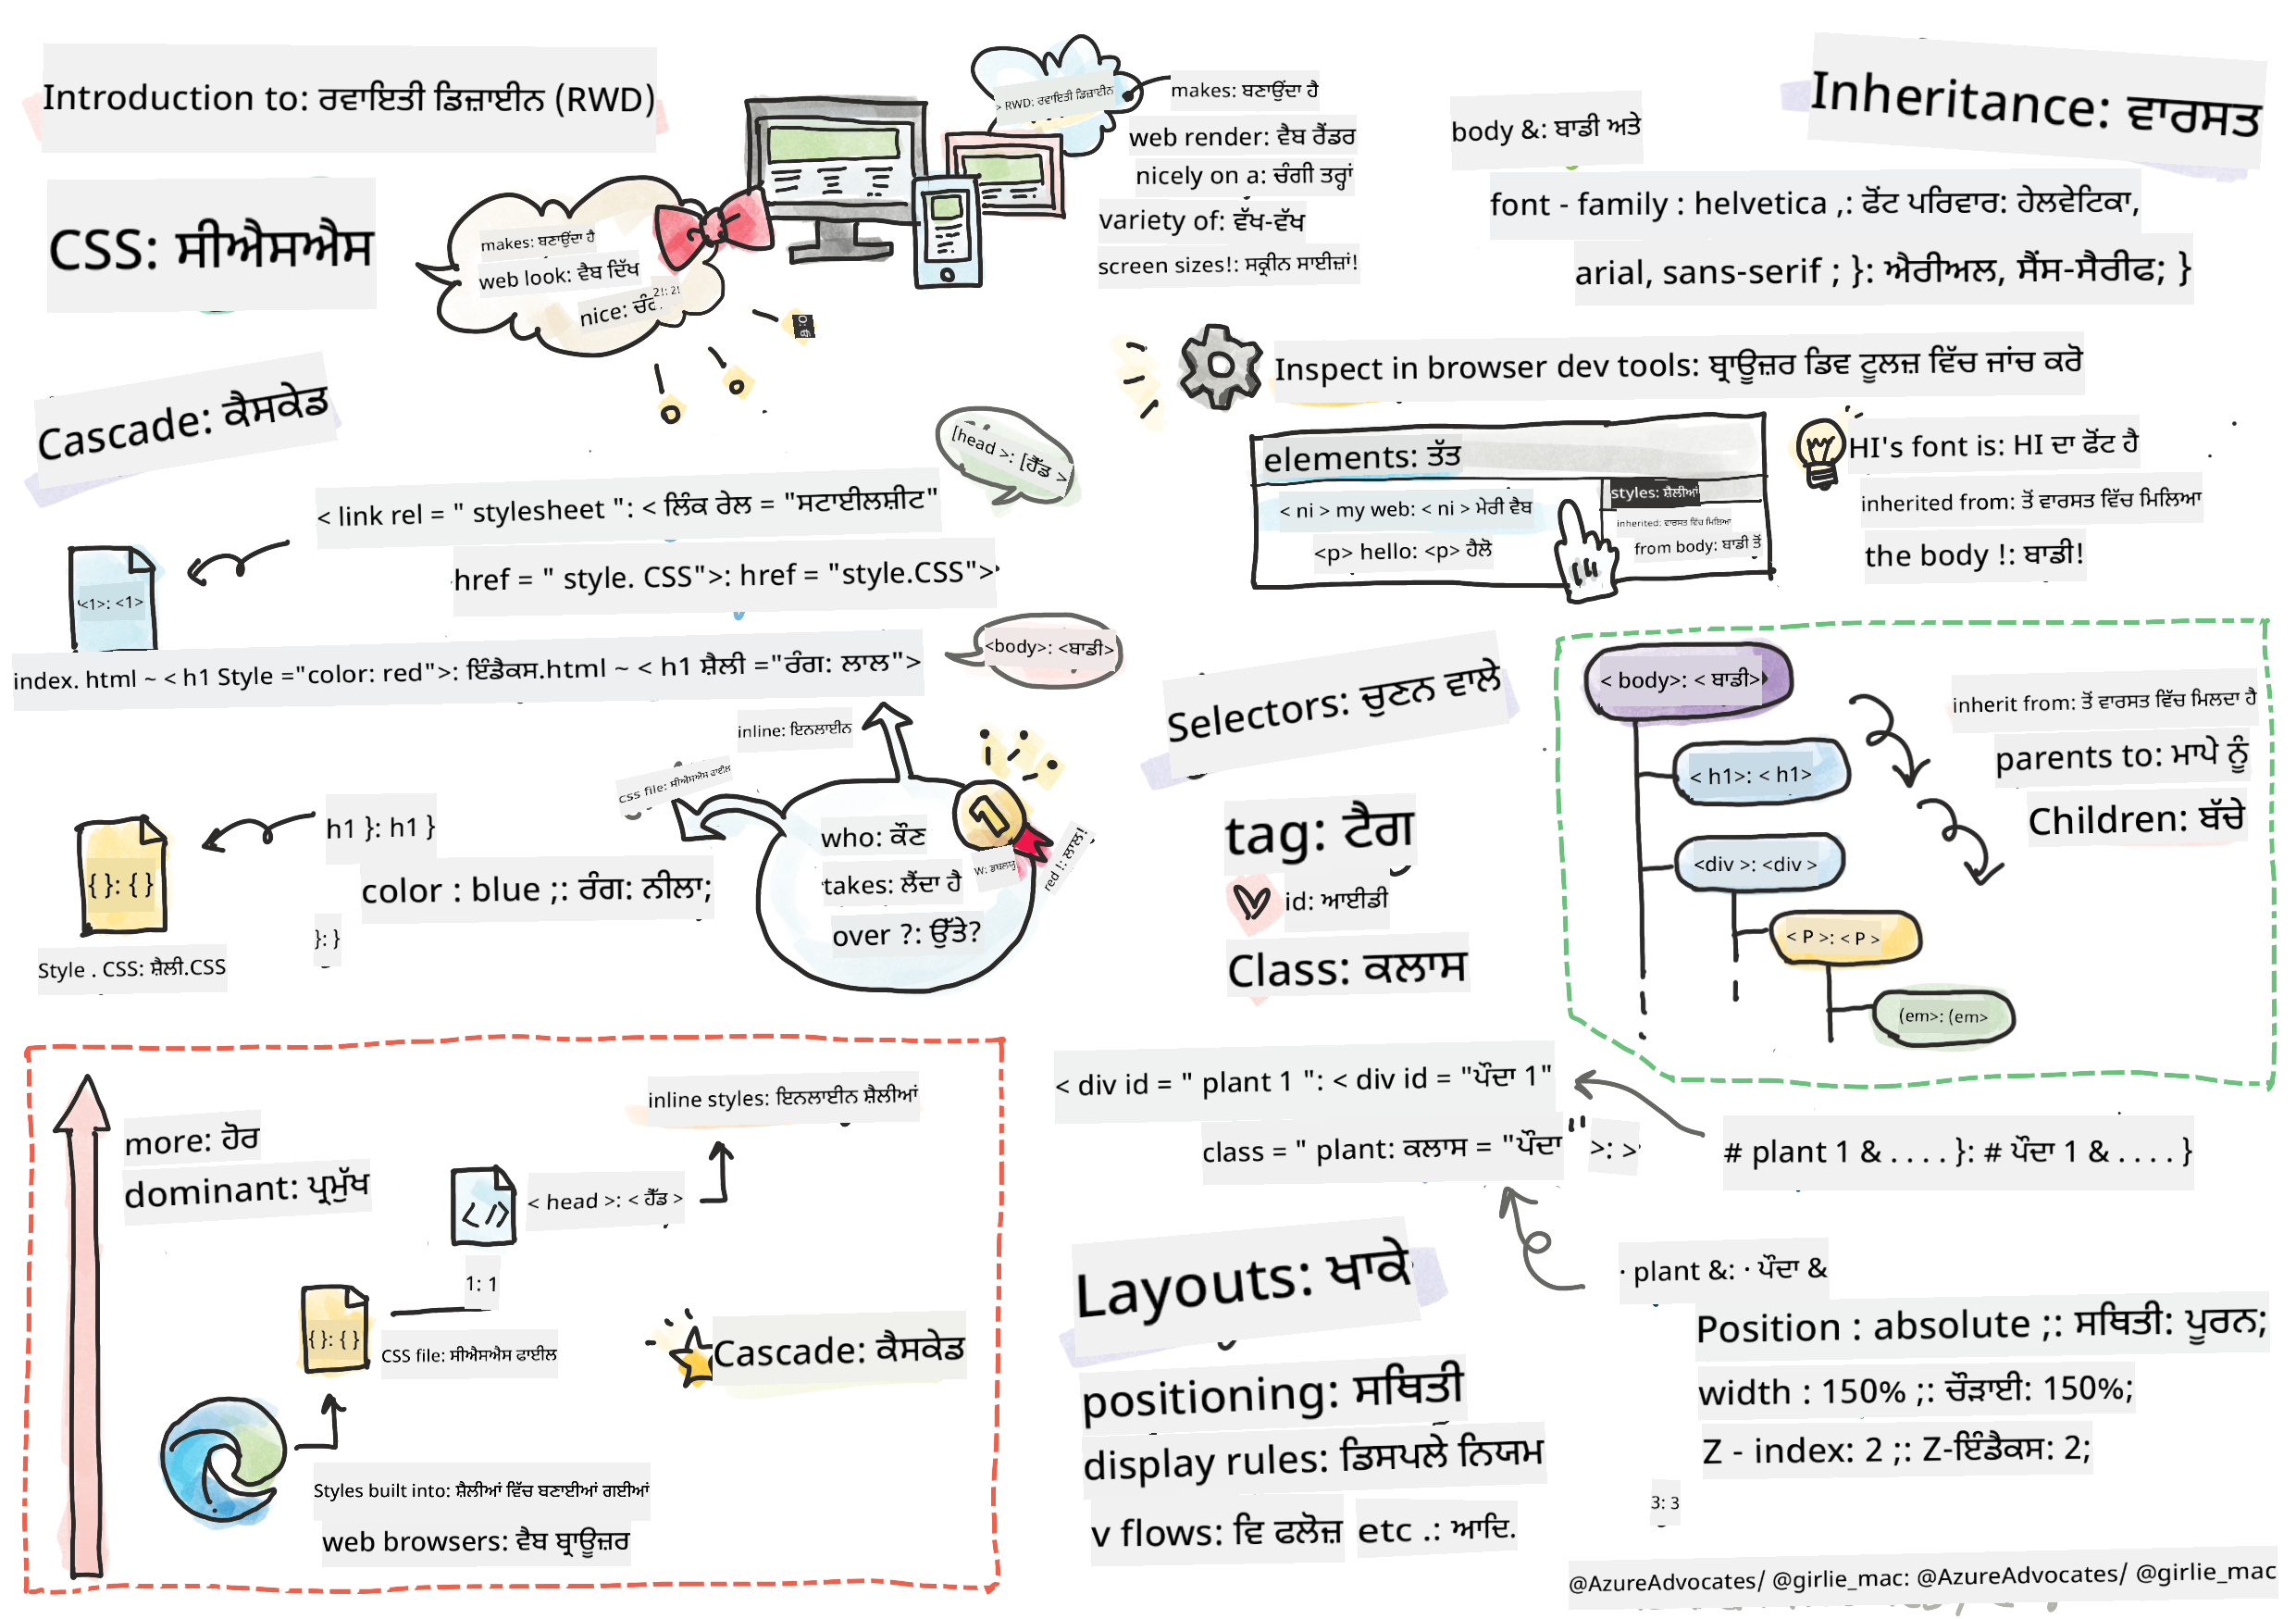 Introduction to: ਰਵਾਇਤੀ ਡਿਜ਼ਾਈਨ (RWD)
CSS: ਸੀਐਸਐਸ
makes: ਬਣਾਉਂਦਾ ਹੈ
web look: ਵੈਬ ਦਿੱਖ
nice:
2!: 2!
> RWD: ਰਵਾਇਤੀ ਡਿਜ਼ਾਈਨ
makes: ਬਣਾਉਂਦਾ ਹੈ
web render: ਵੈਬ ਰੈਂਡਰ
nicely on a: ਚੰਗੀ ਤਰ੍ਹਾਂ
variety of: ਵੱਖ-ਵੱਖ
screen sizes!: ਸਕ੍ਰੀਨ ਸਾਈਜ਼ਾਂ!
Cascade: ਕੈਸਕੇਡ
[head >: [ਹੈੱਡ >
< link rel = " stylesheet ": < ਲਿੰਕ ਰੇਲ = "ਸਟਾਈਲਸ਼ੀਟ"
href = " style. CSS">: href = "style.CSS">
<1>: <1>
index. html ~ < h1 Style ="color: red">: ਇੰਡੈਕਸ.html ~ < h1 ਸ਼ੈਲੀ ="ਰੰਗ: ਲਾਲ">
<body>: <ਬਾਡੀ>
inline: ਇਨਲਾਈਨ
css file: ਸੀਐਸਐਸ ਫਾਈਲ
h1 }: h1 }
{ }: { }
color : blue ;: ਰੰਗ: ਨੀਲਾ;
}: }
Style . CSS: ਸ਼ੈਲੀ.CSS
who: ਕੌਣ
takes: ਲੈਂਦਾ ਹੈ
over ?: ਉੱਤੇ?
1
red !: ਲਾਲ!
more: ਹੋਰ
dominant: ਪ੍ਰਮੁੱਖ
inline styles: ਇਨਲਾਈਨ ਸ਼ੈਲੀਆਂ
</>
< head >: < ਹੈੱਡ >
1: 1
{ }: { }
CSS file: ਸੀਐਸਐਸ ਫਾਈਲ
Cascade: ਕੈਸਕੇਡ
Styles built into: ਸ਼ੈਲੀਆਂ ਵਿੱਚ ਬਣਾਈਆਂ ਗਈਆਂ
web browsers: ਵੈਬ ਬ੍ਰਾਊਜ਼ਰ
Inheritance: ਵਾਰਸਤ
body &: ਬਾਡੀ ਅਤੇ
font - family : helvetica ,: ਫੋਂਟ ਪਰਿਵਾਰ: ਹੇਲਵੇਟਿਕਾ,
arial, sans-serif ; }: ਐਰੀਅਲ, ਸੈਂਸ-ਸੈਰੀਫ; }
Inspect in browser dev tools: ਬ੍ਰਾਊਜ਼ਰ ਡਿਵ ਟੂਲਜ਼ ਵਿੱਚ ਜਾਂਚ ਕਰੋ
elements: ਤੱਤ
< ni > my web: < ni > ਮੇਰੀ ਵੈਬ
<p> hello: <p> ਹੈਲੋ
styles: ਸ਼ੈਲੀਆਂ
inherited: ਵਾਰਸਤ ਵਿੱਚ ਮਿਲਿਆ
from body: ਬਾਡੀ ਤੋਂ
HI's font is: HI ਦਾ ਫੋਂਟ ਹੈ
inherited from: ਤੋਂ ਵਾਰਸਤ ਵਿੱਚ ਮਿਲਿਆ
the body !: ਬਾਡੀ!
Selectors: ਚੁਣਨ ਵਾਲੇ
tag: ਟੈਗ
id: ਆਈਡੀ
Class: ਕਲਾਸ
< body>: < ਬਾਡੀ>
< h1>: < h1>
<div >: <div >
< P >: < P >
(em>: (em>
inherit from: ਤੋਂ ਵਾਰਸਤ ਵਿੱਚ ਮਿਲਦਾ ਹੈ
parents to: ਮਾਪੇ ਨੂੰ
Children: ਬੱਚੇ
< div id = " plant 1 ": < div id = "ਪੌਦਾ 1"
class = " plant: ਕਲਾਸ = "ਪੌਦਾ " >: >
# plant 1 & . . . . }: # ਪੌਦਾ 1 & . . . . }
Layouts: ਖਾਕੇ
positioning: ਸਥਿਤੀ
display rules: ਡਿਸਪਲੇ ਨਿਯਮ
v flows: ਵਿ ਫਲੋਜ਼ etc .: ਆਦਿ.
· plant &: · ਪੌਦਾ &
Position : absolute ;: ਸਥਿਤੀ: ਪੂਰਨ;
width : 150% ;: ਚੌੜਾਈ: 150%;
Z - index: 2 ;: Z-ਇੰਡੈਕਸ: 2;
3: 3
@AzureAdvocates/ @girlie_mac: @AzureAdvocates/ @girlie_mac